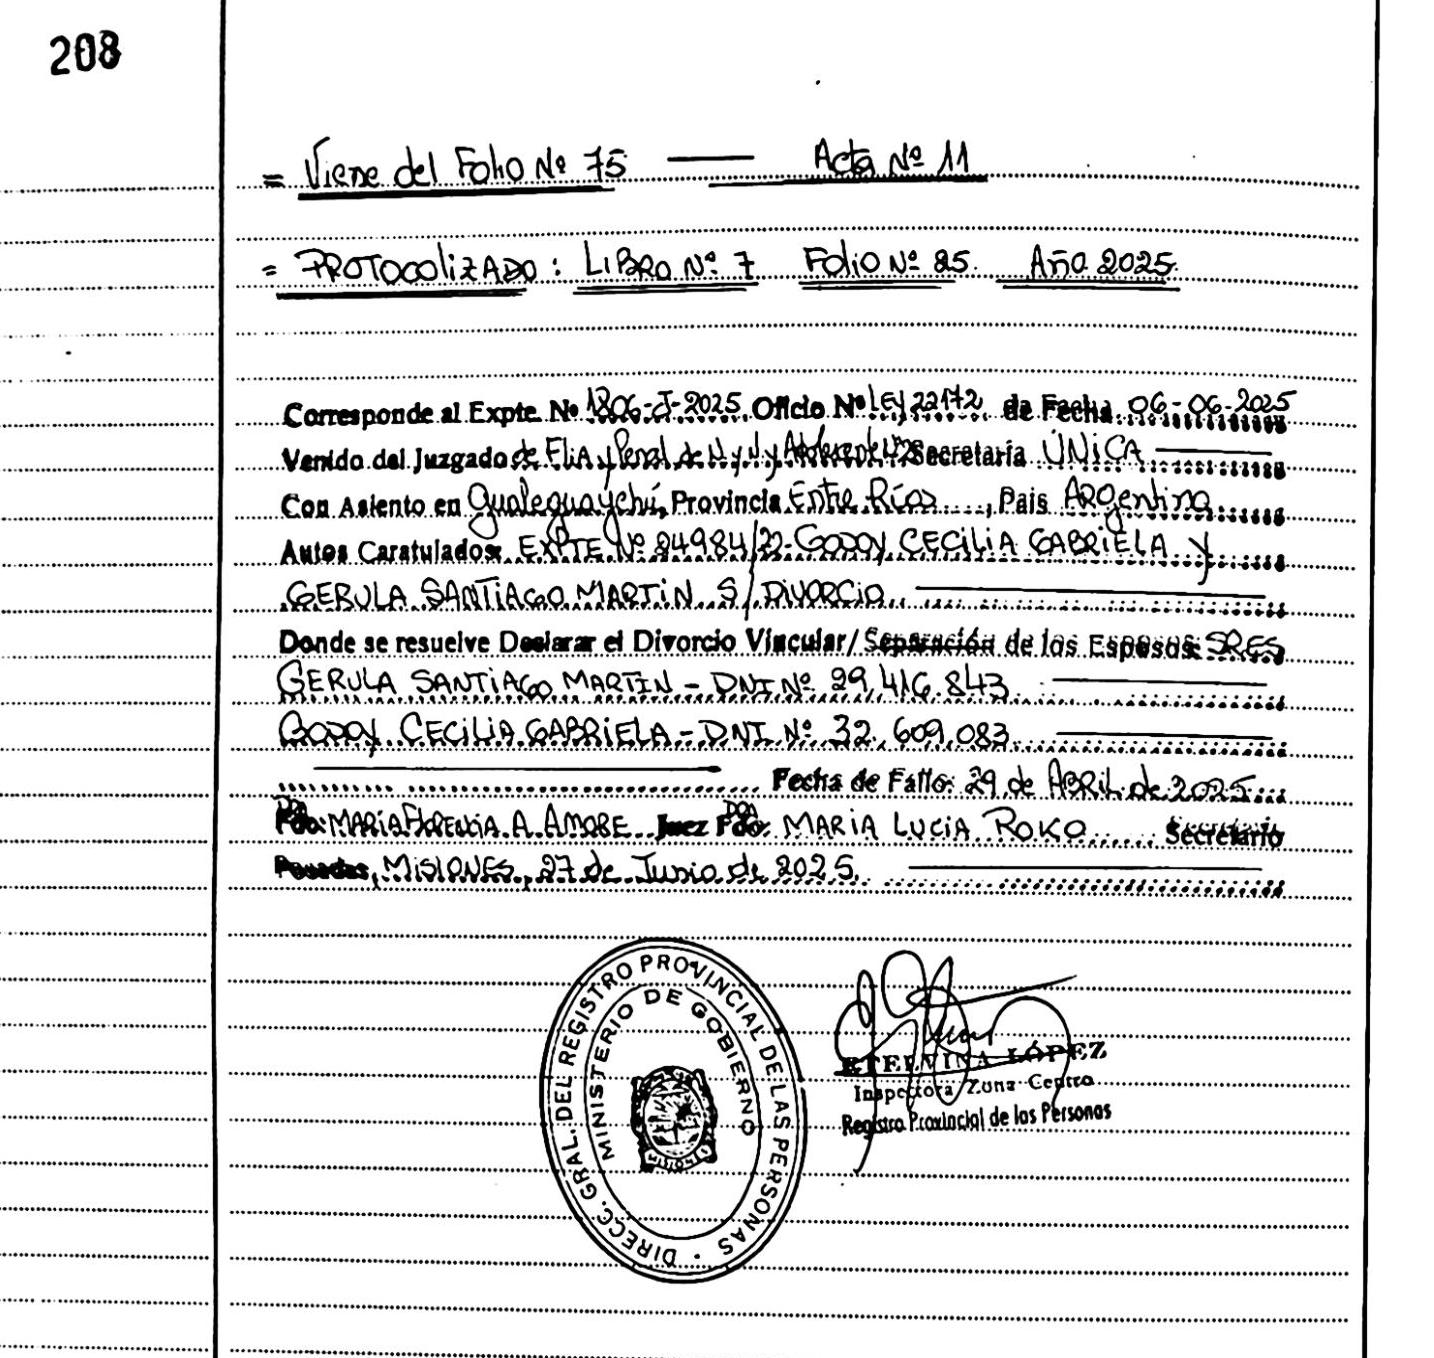 208
= Viene del Folio Nº 75 — Acta Nº 11
= PROTOCOLIZADO: LIBRO Nº 7 Folio Nº 85. Año 2025.
Corresponde al Expte. Nº 1806-J-2025. Oficio Nº LEY 22172 de Fecha 06-06-2025
Venido del Juzgado de Flia y Penal de N y Secretaría ÚNICA
Con Asiento en Gualeguaychú, Provincia Entre Ríos, Pais Argentina
Autos Caratulados: EXPTE Nº 84984/22-GODOY CECILIA GABRIELA Y
GERULA SANTIAGO MARTIN S/ DIVORCIO
Donde se resuelve Declarar el Divorcio Vincular/ Separación de los Esposos: SRES
GERULA SANTIAGO MARTIN - DNI Nº 29.416.843
GODOY CECILIA GABRIELA - DNI Nº 32.609.083
Fecha de Fallo: 29 de ABRIL de 2025
DRA MARIA FLORENCIA A. AMORE Juez Fdo: DRA MARIA LUCIA ROKO Secretario
Posadas, MISIONES, 27 de Junio de 2025.
DIRECC. GRAL. DEL REGISTRO PROVINCIAL DE LAS PERSONAS
MINISTERIO DE GOBIERNO
MISIONES
ETELVINA LÓPEZ
Inspectora Zona Centro
Registro Provincial de las Personas